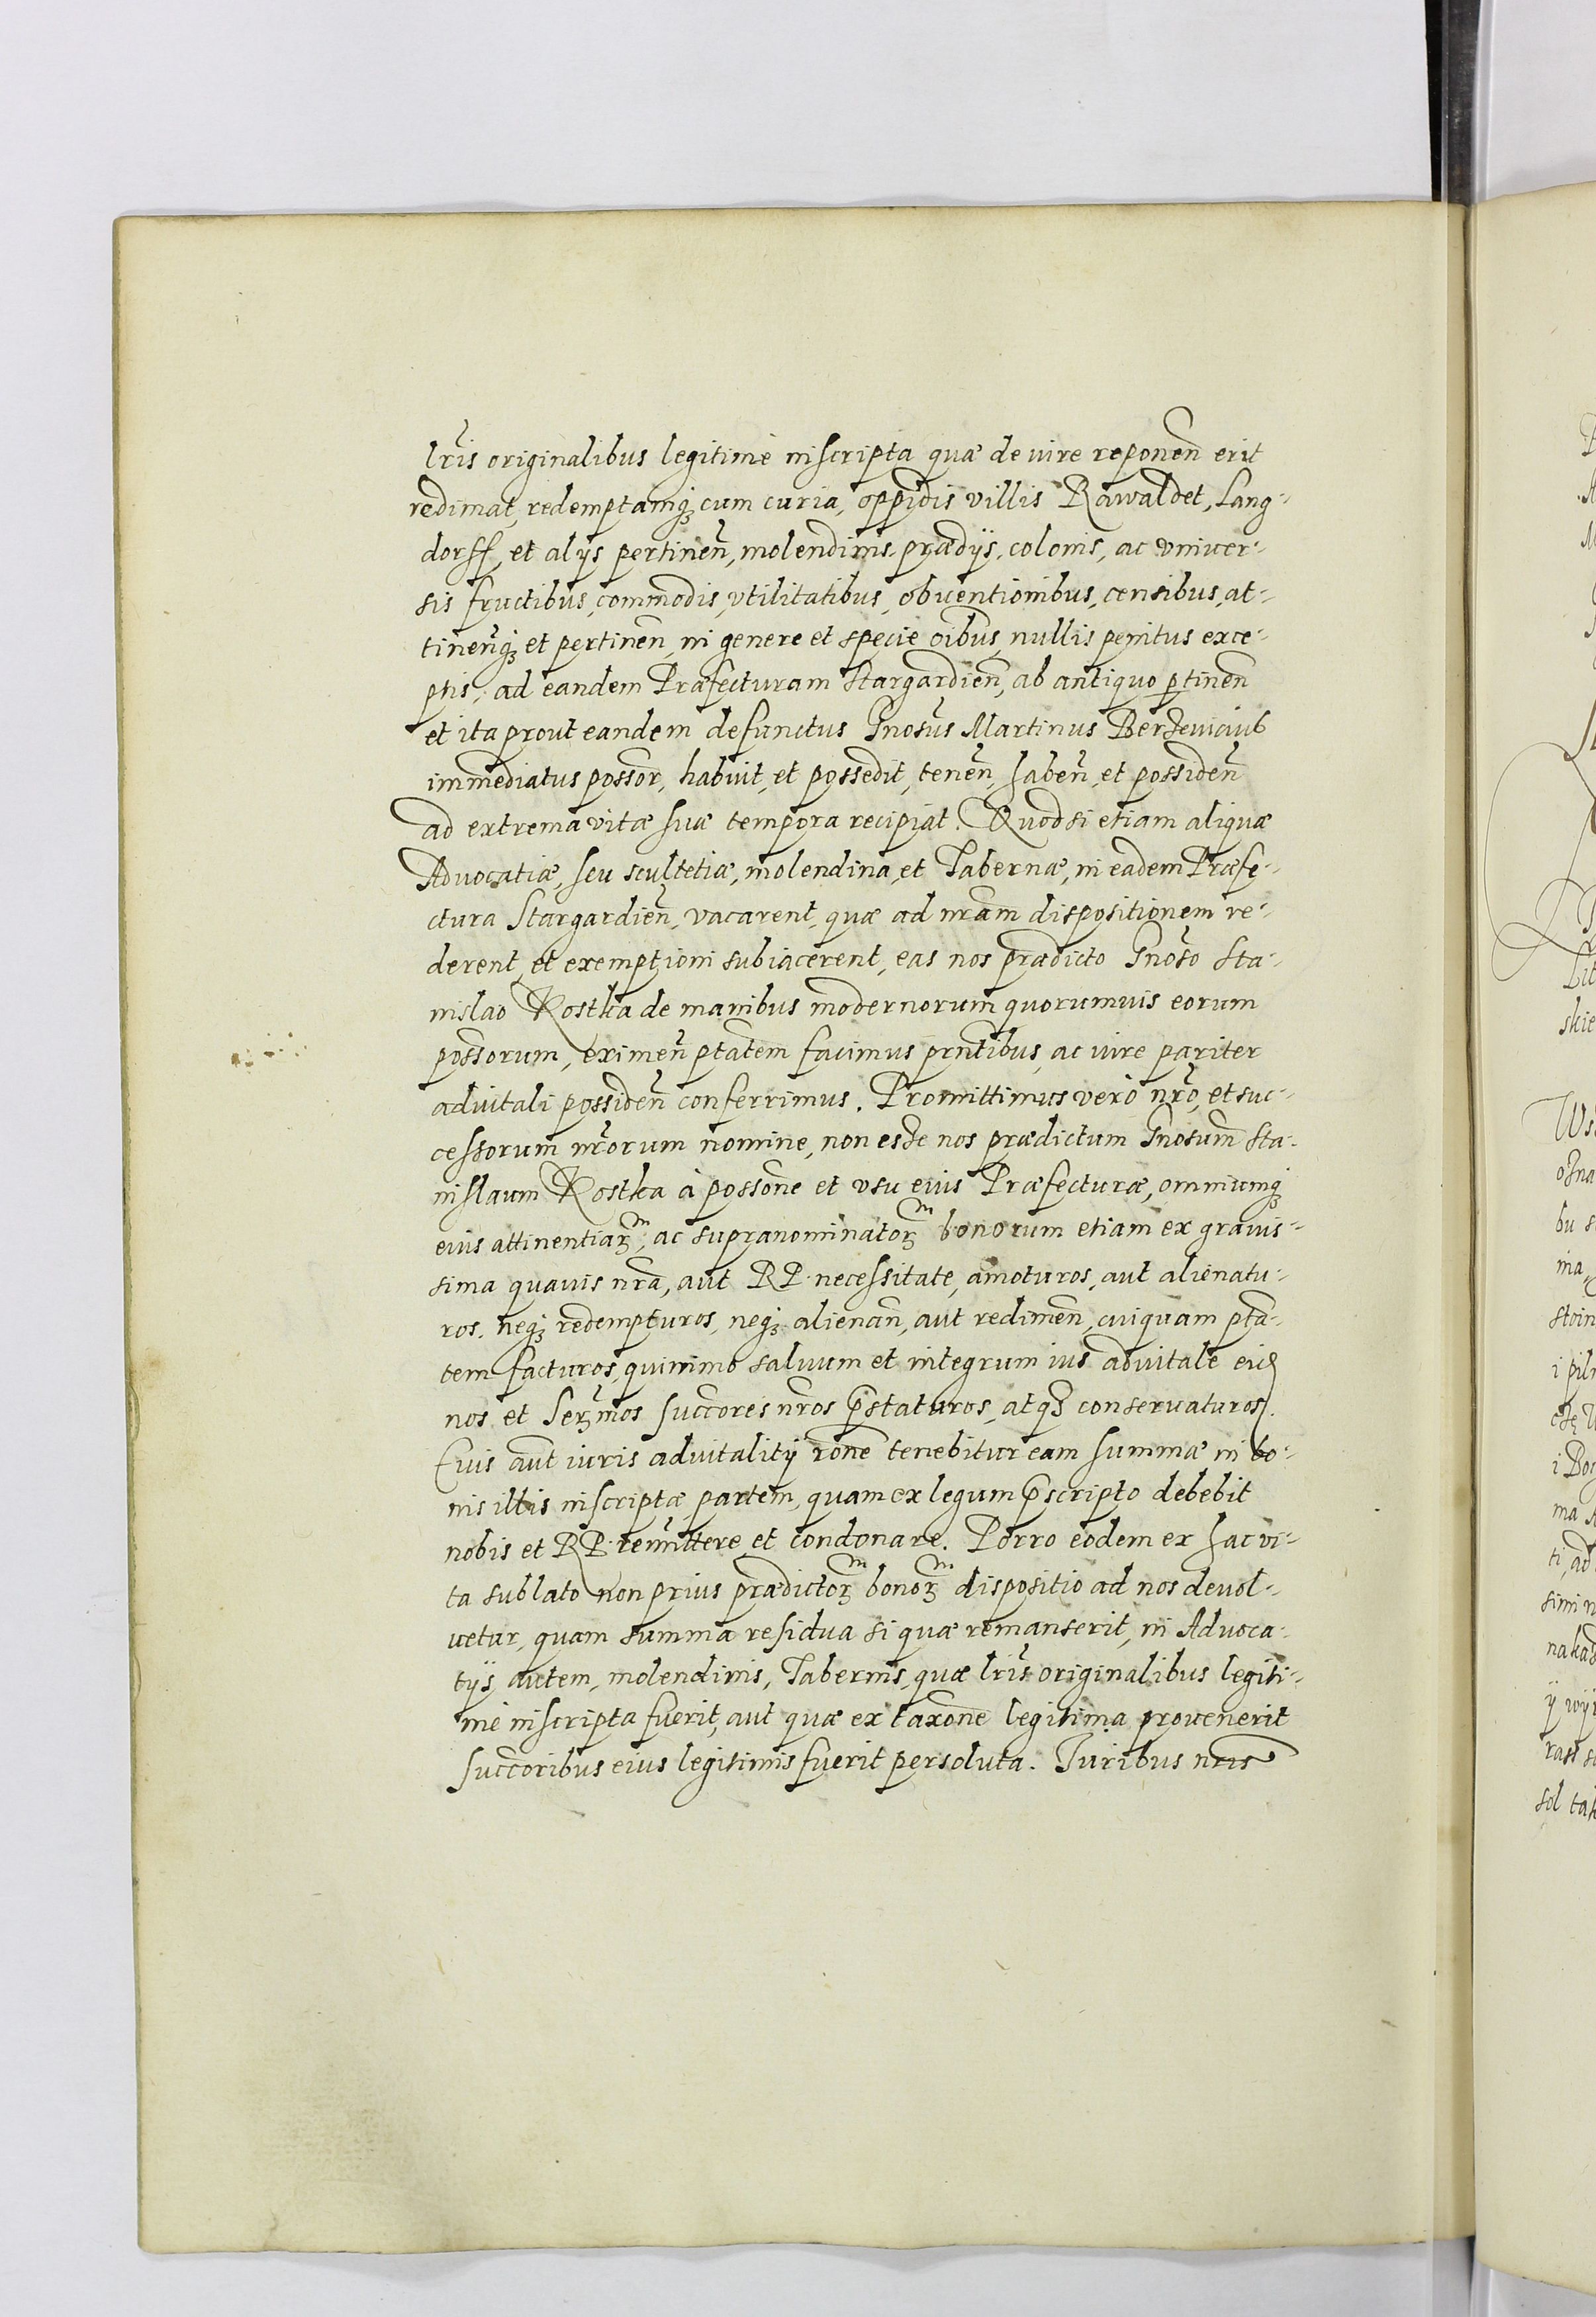 lris originalibus legitime inscripta quæ de iure reponen̄ erit
redimat, redemptamq₃ cum curia, oppidis villis Rawaldet, Lang-
dorff, et alijs pertinen̄, molendinis, prædijs, colonis, ac vniuer-
sis fructibus, commodis, vtilitatibus, obuentionibus, censibus, at-
tinen̄q₃ et pertinen̄, in genere et specie oībus, nullis penitus exce-
ptis, ad eandem Præfecturam Stargardien̄, ab antiquo ptinen̄
et ita prout eandem defunctus Gnosus Martinus Berzeuicius
immediatus possor, habuit, et possedit, tenen̄, haben̄, et possiden̄
ad extrema vitæ suæ tempora recipiat. Quod si etiam aliquæ
Aduocatiæ, seu scultetiæ, molendina, et Tabernæ, in eadem Præfe-
ctura Stargardien̄, vacarent, quæ ad nram dispositionem re-
derent, et exemptioni subiacerent, eas nos prædicto Gnoso Sta-
nislao Kostka de manibus modernorum quorumuis eorum
possorum, eximen̄ ptatem facimus prntibus, ac iure pariter
aduitali possiden̄ conferrimus. Promittimus vero nro, et suc-
cessorum nrorum nomine, non esse nos prædictum Gnosum Sta-
nislaum Kostka à possone et vsu eius Præfecturæ, omniumq₃
eius attinentiarm, ac supranominatorm bonorum etiam ex grauis-
sima quauis nra, aut RP. necessitate, amoturos, aut alienatu-
ros, neq₃ redempturos, neq₃ alienan̄, aut redimen̄, cuiquam pta-
tem facturos, quinimo saluum et integrum ius aduitale eid
nos et Sermos succores nros pstaturos, atq₃ conseruaturos.
Cuis aut iuris aduitalitij rone tenebitur eam summæ in bo-
nis illis inscriptæ partem, quam ex legum pscripto debebit
nobis et RP. remittere et condonare. Porro eodem ex hac vi-
ta sublato non prius prædictorm bonorm dispositio ad nos deuol-
uetur, quam summa residua si quæ remanserit, in Aduoca-
tijs autem, molendinis, Tabernis, quæ lris originalibus legiti-
me inscripta fuerit, aut quæ ex taxone legitima prouenerit
succoribus eius legitimis fuerit persoluta. Iuribus nris